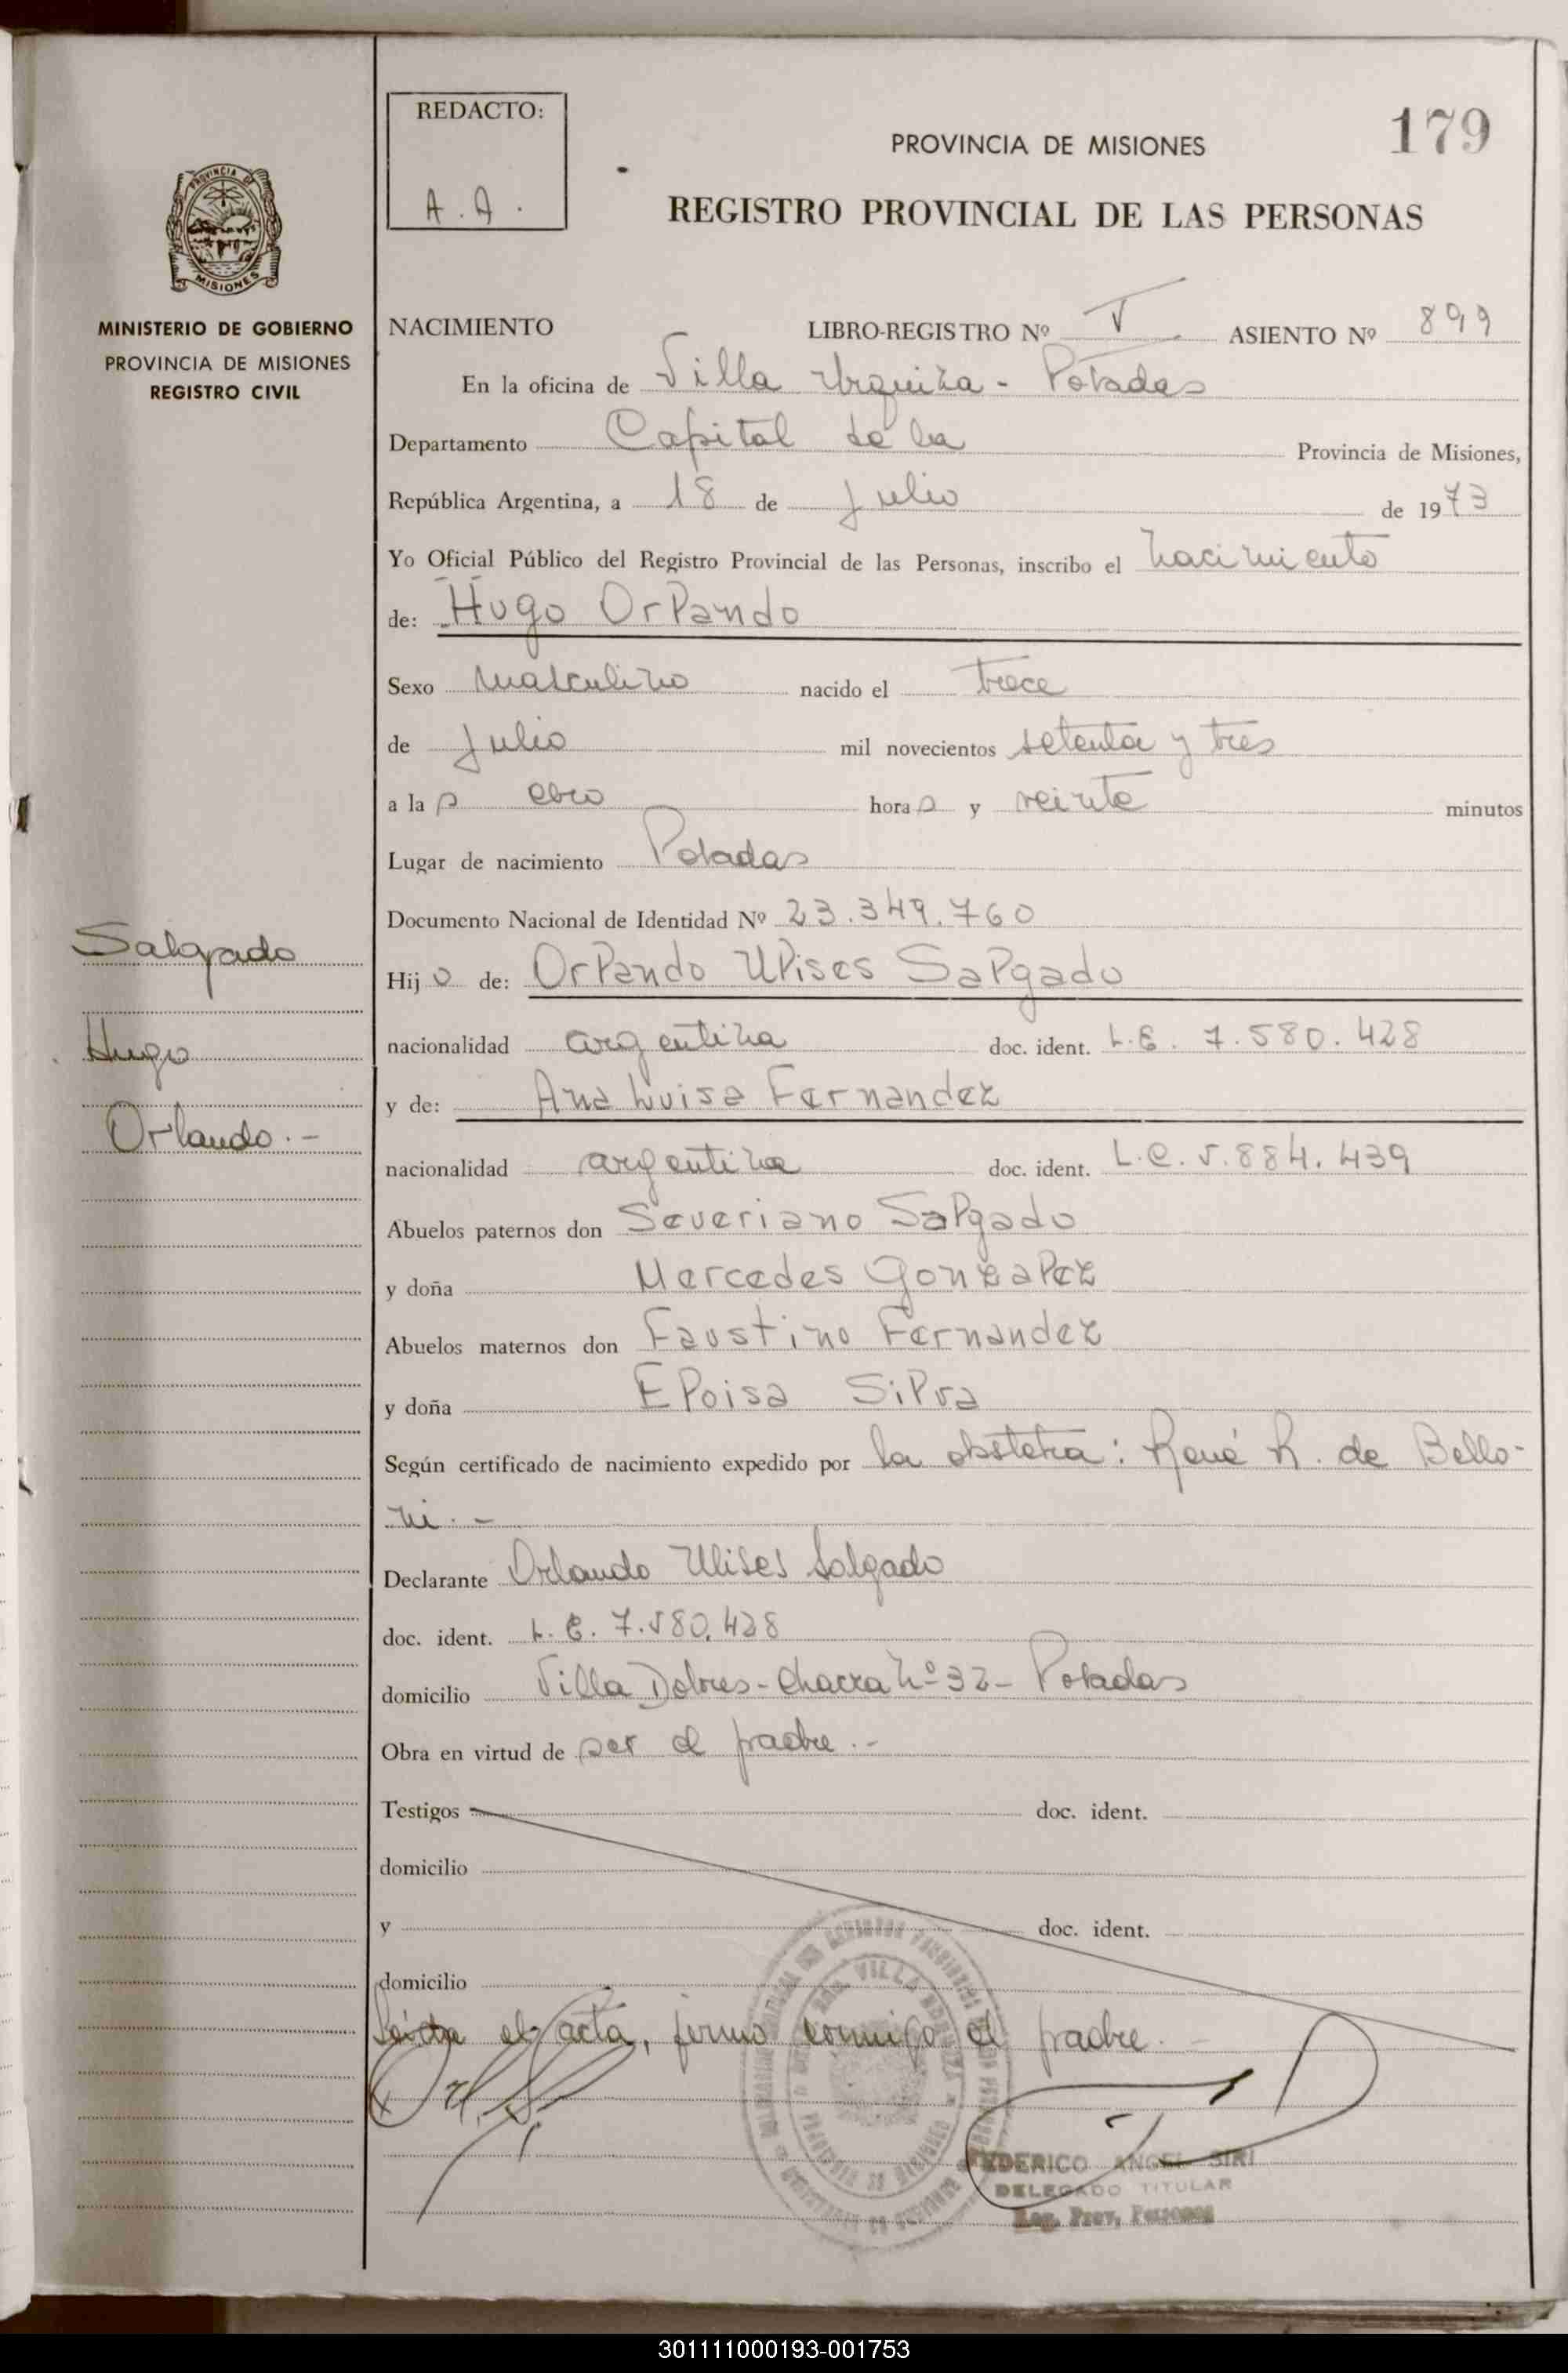 REDACTO:
A. A.
179
PROVINCIA DE MISIONES
REGISTRO PROVINCIAL DE LAS PERSONAS
PROVINCIA DE
MISIONES
MINISTERIO DE GOBIERNO
PROVINCIA DE MISIONES
REGISTRO CIVIL
NACIMIENTO LIBRO-REGISTRO Nº V ASIENTO Nº 899
En la oficina de Villa Urquiza - Posadas
Departamento Capital de la Provincia de Misiones,
República Argentina, a 18 de Julio de 1973
Yo Oficial Público del Registro Provincial de las Personas, inscribo el nacimiento
de: Hugo Orlando
Sexo masculino nacido el trece
de Julio mil novecientos setenta y tres
a las ocho horas y veinte minutos
Lugar de nacimiento Posadas
Documento Nacional de Identidad Nº 23.349.760
Salgado
Hugo
Orlando.-
Hijo de: Orlando Ulises Salgado
nacionalidad argentina doc. ident. L.E. 7.580.428
y de: Ana Luisa Fernandez
nacionalidad argentina doc. ident. L.C. 5.884.439
Abuelos paternos don Severiano Salgado
y doña Mercedes Gonzalez
Abuelos maternos don Faustino Fernandez
y doña Eloisa Silva
Según certificado de nacimiento expedido por la obstetra: René R. de Bello-
ni.-
Declarante Orlando Ulises Salgado
doc. ident. L.E. 7.580.428
domicilio Villa Dolores - Chacra Nº 32 - Posadas
Obra en virtud de ser el padre.-
Testigos doc. ident.
domicilio
y doc. ident.
domicilio
Leída el acta, firma conmigo el padre.-
FEDERICO ANGEL SIRI
DELEGADO TITULAR
Reg. Prov. Personas
301111000193-001753